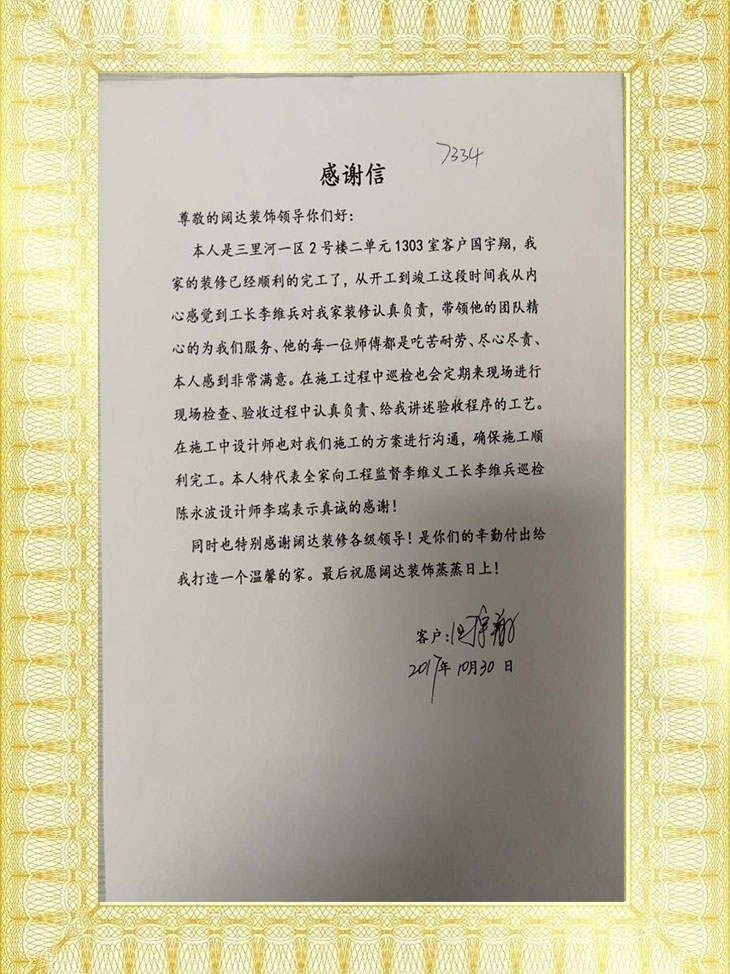 7334
感谢信
尊敬的阔达装饰领导你们好：
本人是三里河一区2号楼二单元1303室客户国宇翔，我
家的装修已经顺利的完工了，从开工到竣工这段时间我从内
心感觉到工长李维兵对我家装修认真负责，带领他的团队精
心的为我们服务、他的每一位师傅都是吃苦耐劳、尽心尽责、
本人感到非常满意。在施工过程中巡检也会定期来现场进行
现场检查、验收过程中认真负责、给我讲述验收程序的工艺。
在施工中设计师也对我们施工的方案进行沟通，确保施工顺
利完工。本人特代表全家向工程监督李维义工长李维兵巡检
陈永波设计师李瑞表示真诚的感谢！
同时也特别感谢阔达装修各级领导！是你们的辛勤付出给
我打造一个温馨的家。最后祝愿阔达装饰蒸蒸日上！
客户：国宇翔
2017年10月30日